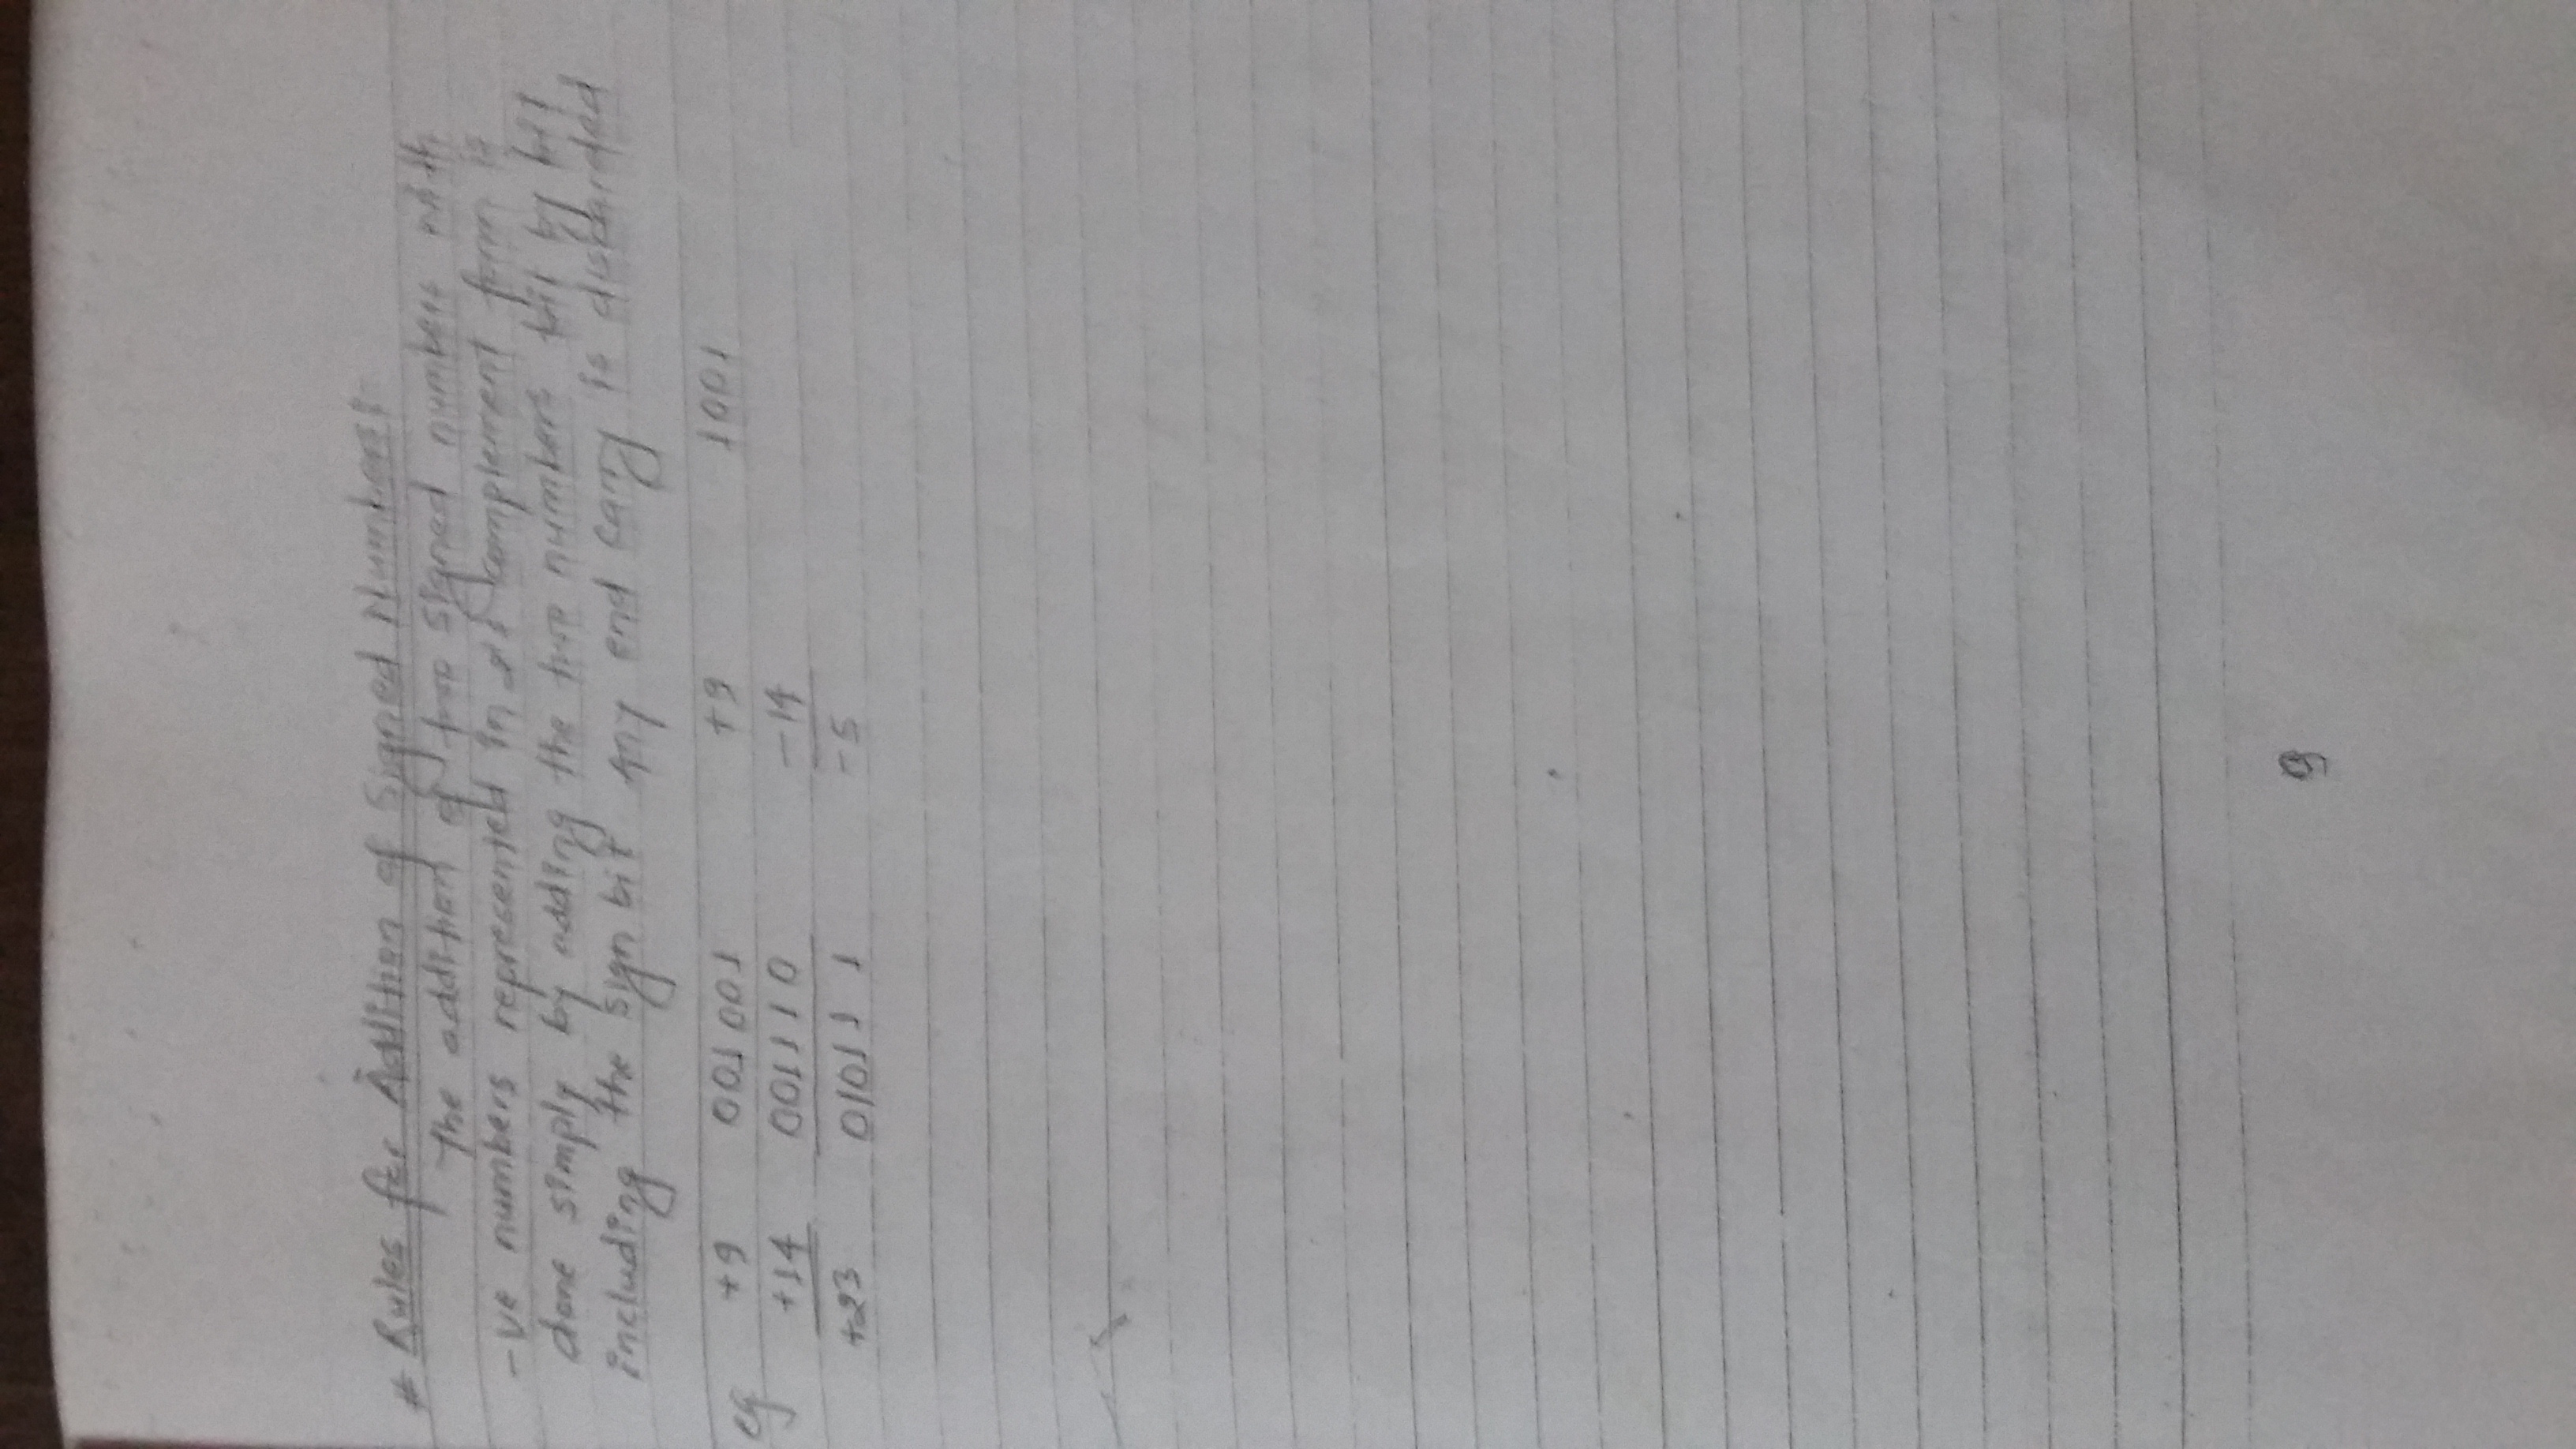 # Rules for Addition of Signed Numbers:-
The addition of two signed numbers with
-ve numbers represented in 2's complement form is
done simply by adding the two numbers bit by bit
including the sign bit Any end carry is discarded
eg +9 001001 +9 1001
+14 001110 -14
+23 010111 -5
9